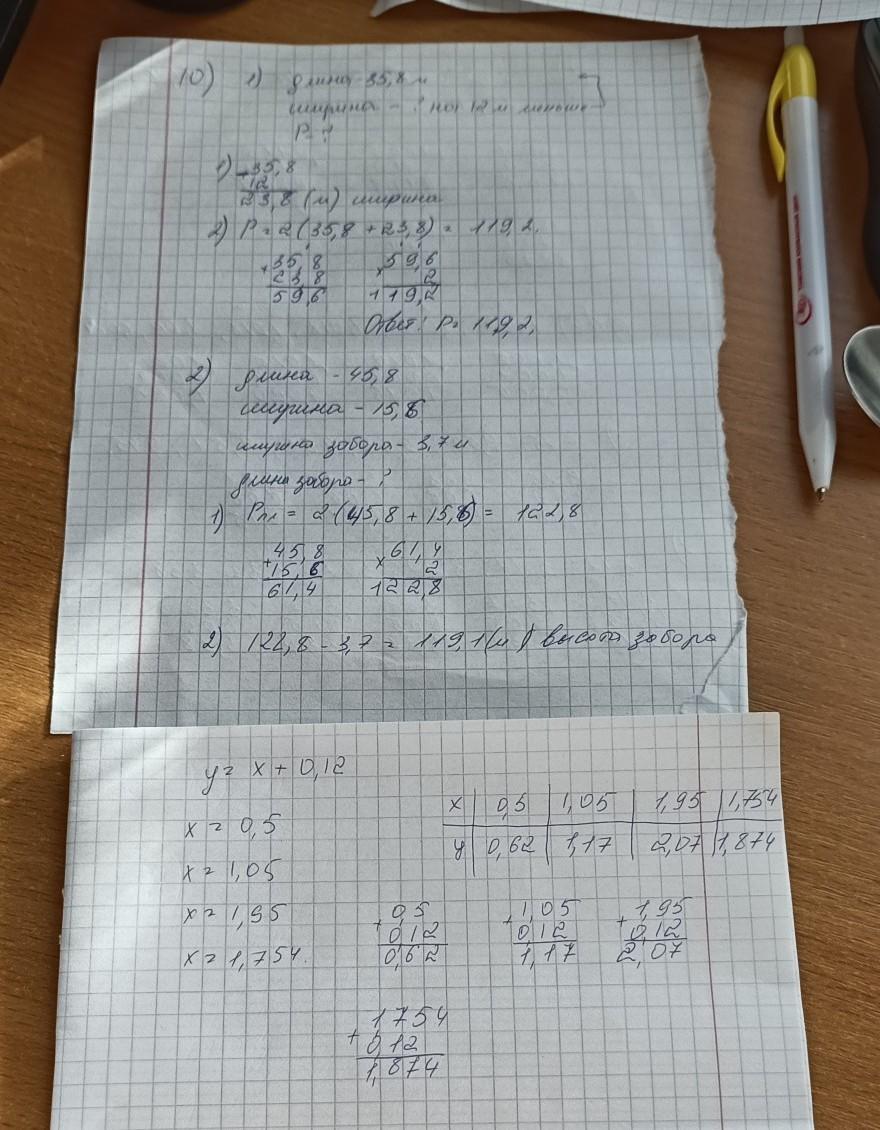 10) 1) длина - 35,8 м
ширина - ? на 12 м меньше
P - ?
1) - 35,8
12
23,8 (м) ширина
2) P = 2 (35,8 + 23,8) = 119,2.
+ 35,8 × 59,6
23,8 2
59,6 119,2
Ответ: P = 119,2.
2) длина - 45,8
ширина - 15,6
ширина забора - 3,7 м
длина забора - ?
1) Pпл = 2 (45,8 + 15,6) = 122,8
+ 45,8 × 61,4
15,6 2
61,4 122,8
2) 122,8 - 3,7 = 119,1 (м) высота забора
y = x + 0,12
x 0,5 1,05 1,95 1,754
y 0,62 1,17 2,07 1,874
x = 0,5
x = 1,05
x = 1,95
x = 1,754.
+ 0,5 + 1,05 + 1,95
0,12 0,12 0,12
0,62 1,17 2,07
+ 1754
0,12
1,874